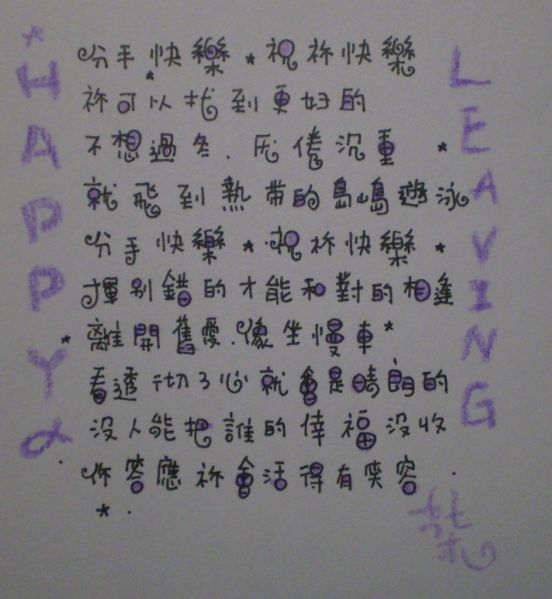 *HAPPY&
分手快樂*祝祢快樂
祢可以找到更好的
不想過冬.厌倦沉重*
就飛到熱带的島嶋遊泳
分手快樂*祝祢快樂*
揮别錯的才能和對的相逢
*離開舊愛.像坐慢車*
看透一切了心就會是晴朗的
沒人能把誰的倖福沒收
你答應祢會活得有笑容.
*.
LEAVING